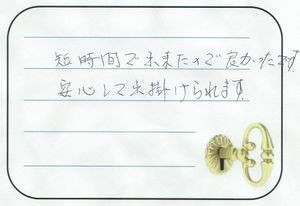 短時間で出来たので良かったです
安心して出掛けられます